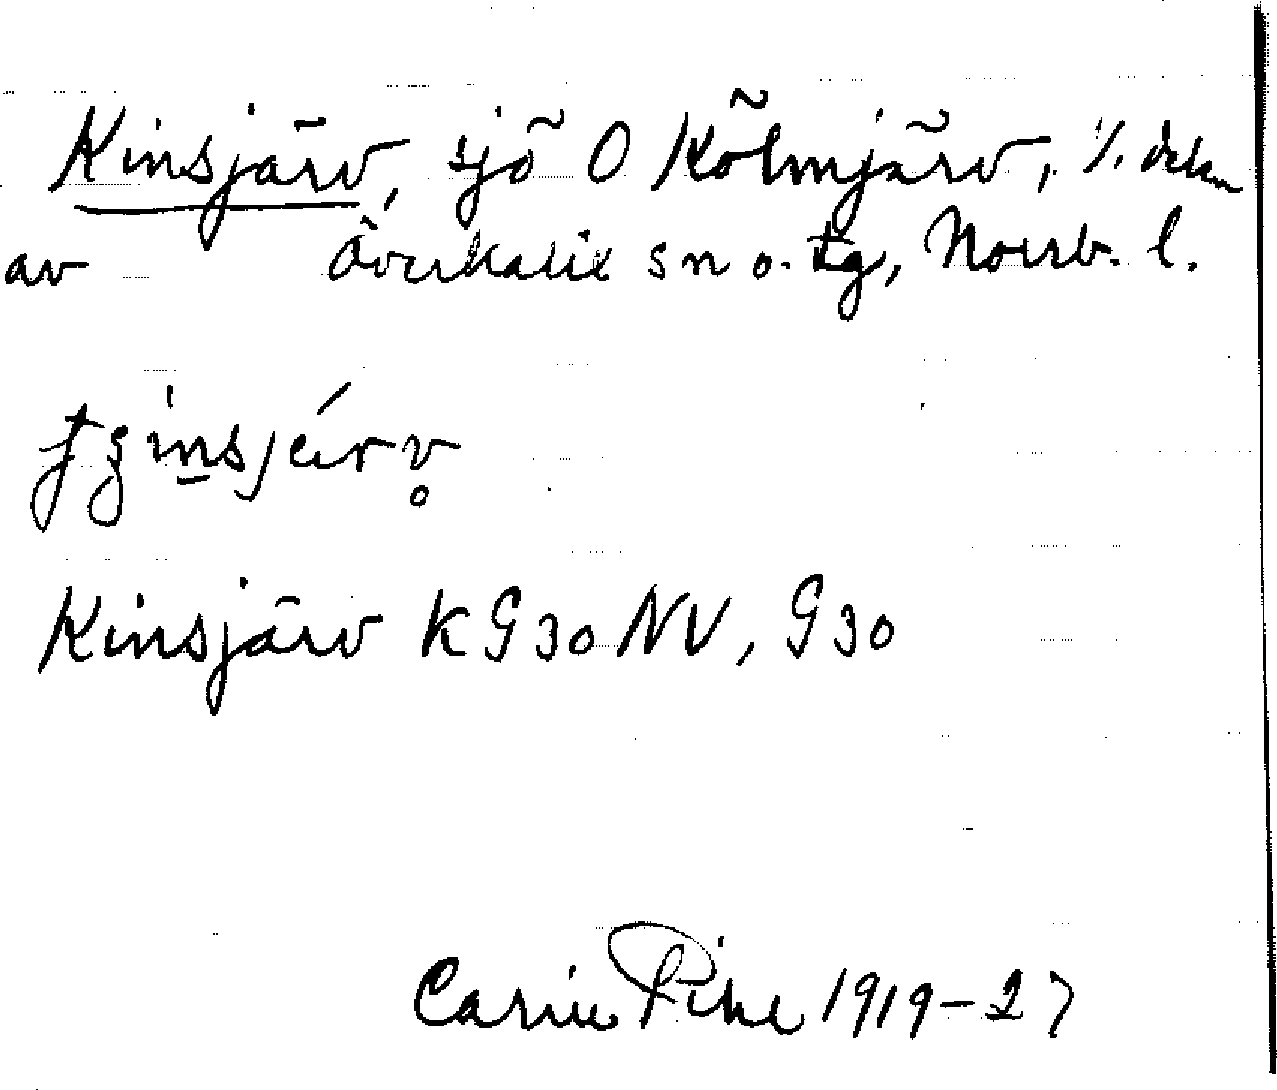 Kinsjärv, sjö O Kölmjärv, i /. delen
av Överkalix sn o. tg, Norrb. l.
insjärv̥
Kinsjärv K G 30 NV, G 30
Carin Pihl 1919-27